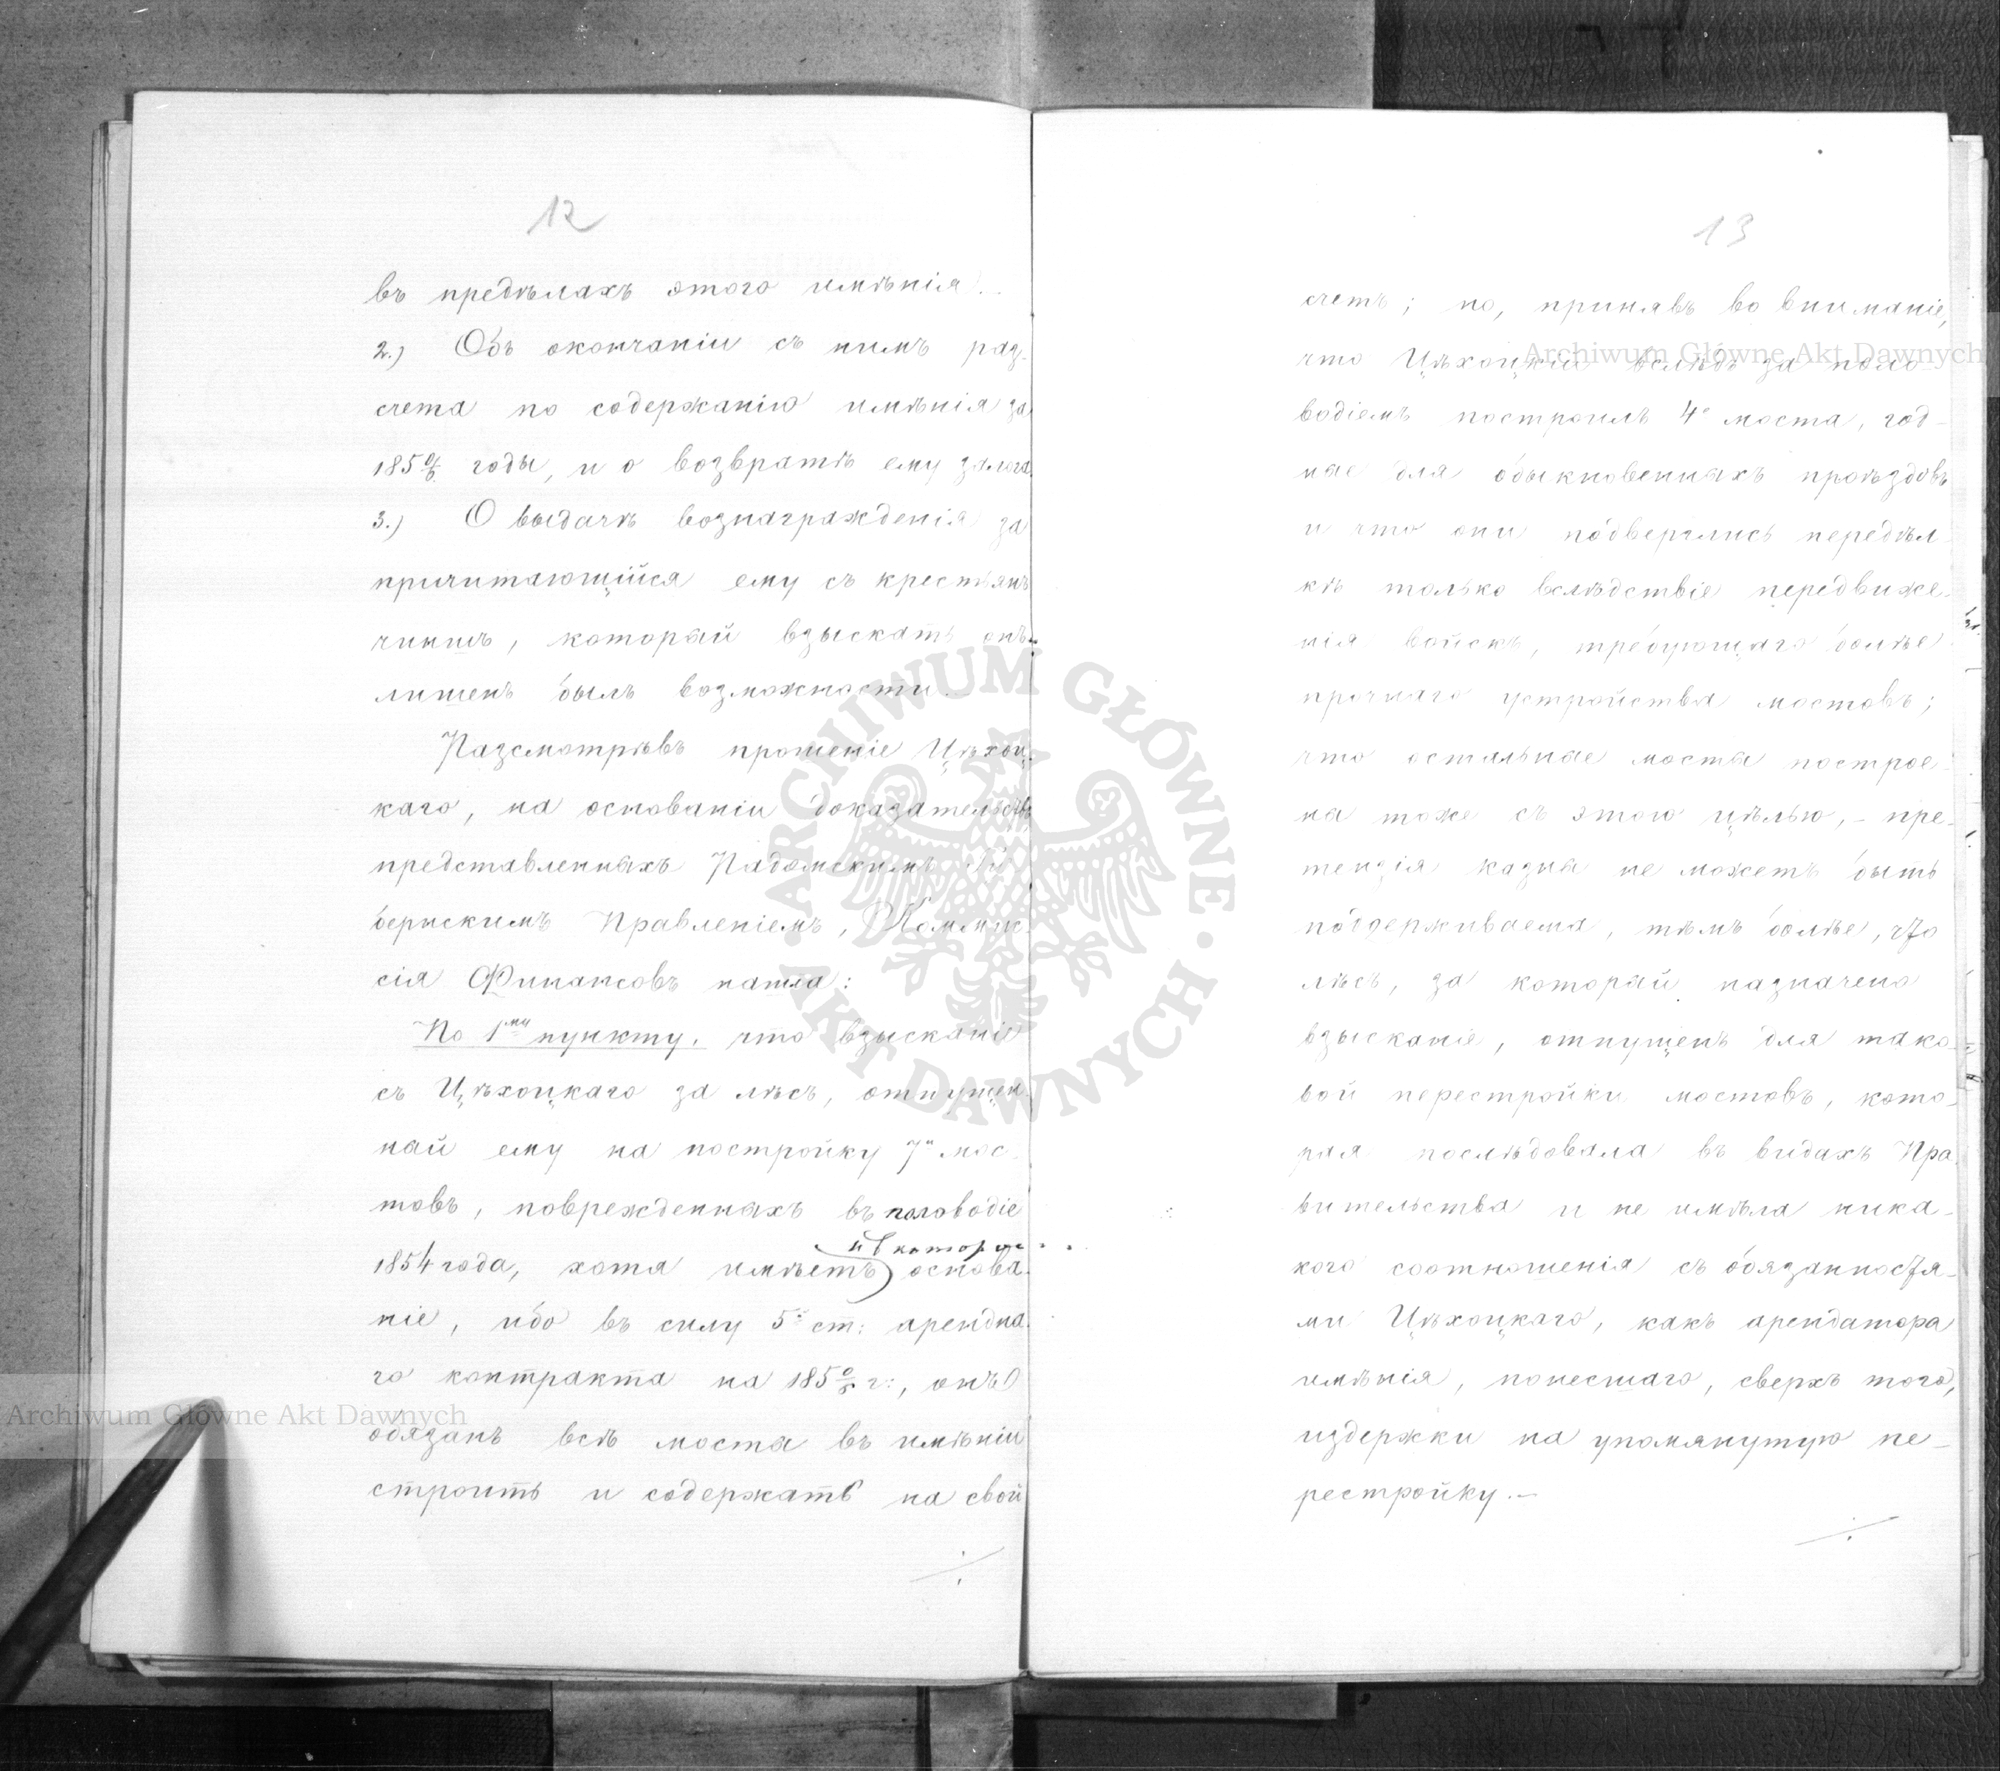 12
въ предѣлахъ этого имѣнія.
2.) Объ окончаніи съ нимъ раз-
счета по содержанію имѣнія за
годы, и о возвратѣ ему залога.
3.) О выдачѣ вознагражденія за
причитающійся ему съ крестьянъ
чиншъ, который взыскать онъ
лишенъ былъ возможности.
Разсмотрѣвъ прошеніе Цѣхоц-
каго, на основаніи доказательствъ
представленныхъ Радомскимъ Гу-
бернскимъ Правленіемъ, Коммис-
сія Финансовъ нашла:
По 1му пункту, что взысканіе
съ Цѣхоцкаго за лѣсъ, отпущен-
ный ему на постройку 7и мос-
товъ, поврежденныхъ въ половодіе
1854 года, хотя имѣетъ нѣкоторое основа-
ніе, ибо въ силу 5й ст: арендна-
го контракта на г:, онъ
обязанъ всѣ моста въ имѣніи
строить и содержать на свой
13
счетъ; но, принявъ во вниманіе,
что Цѣхоцкій вслѣдъ за поло-
водіемъ построилъ 4е моста, год-
ные для обыкновенныхъ проѣздовъ
и что они подверглись передѣл-
кѣ только вслѣдствіе передвиже-
нія войскъ, требующаго болѣе
прочнаго устройства мостовъ;
что остальные мосты построе-
ны тоже съ этою цѣлью, - пре-
тензія казны не можетъ быть
поддерживаема, тѣмъ болѣе, что
лѣсъ, за который назначено
взысканіе, отпущенъ для тако-
вой перестройки мостовъ, кото-
рая послѣдовала въ видахъ Пра-
вительства и не имѣла ника-
кого соотношенія съ обязанностя-
ми Цѣхоцкаго, какъ арендатора
имѣнія, понесшаго, сверхъ того,
издержки на упомянутую пе-
рестройку.-
Archiwum Główne Akt Dawnych
Archiwum Główne Akt Dawnych
ARCHIWUM GŁÓWNE · AKT DAWNYCH ·